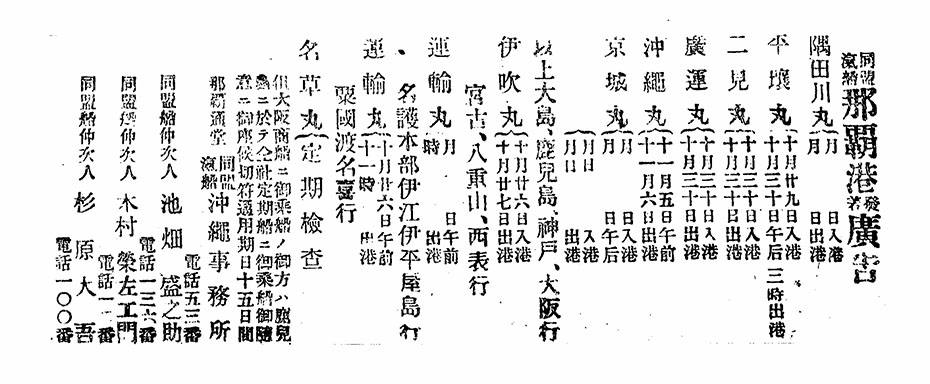 同盟滊船那覇港發着廣告
隅田川丸 月 日入港 月 日出港
平壤丸 十月廿九日入港 十月三十日午后三時出港
二見丸 十月三十日入港 十月三十日出港
廣運丸 十月三十日入港 十月三十日出港
沖繩丸 十一月五日午前 十一月六日出港
京城丸 月 日入港 月 日午后
月日 入港 月日 出港
以上大島、鹿兒島、神戸、大阪行
伊吹丸 十月廿六日入港 十月廿七日出港
宮古、八重山、西表行
運輸丸 月 日午前 時 出港
名護本部伊江伊平屋島行
運輸丸 十月廿六日午前 十一時 出港
粟國渡名喜行
名草丸 定期檢査
但大阪商船ニ御乘船ノ御方ハ鹿兒
島ニ於テ仝社定期船ニ御乘船御隨
意ニ御座候切符通用期日十五日間
那覇通堂 同盟滊船 沖繩事務所
電話五三番
同盟船仲次人 池畑盛之助
電話一三六番
同盟船仲次人 木村榮左工門
電話一一番
同盟船仲次人 杉原大吾
電話一〇〇番